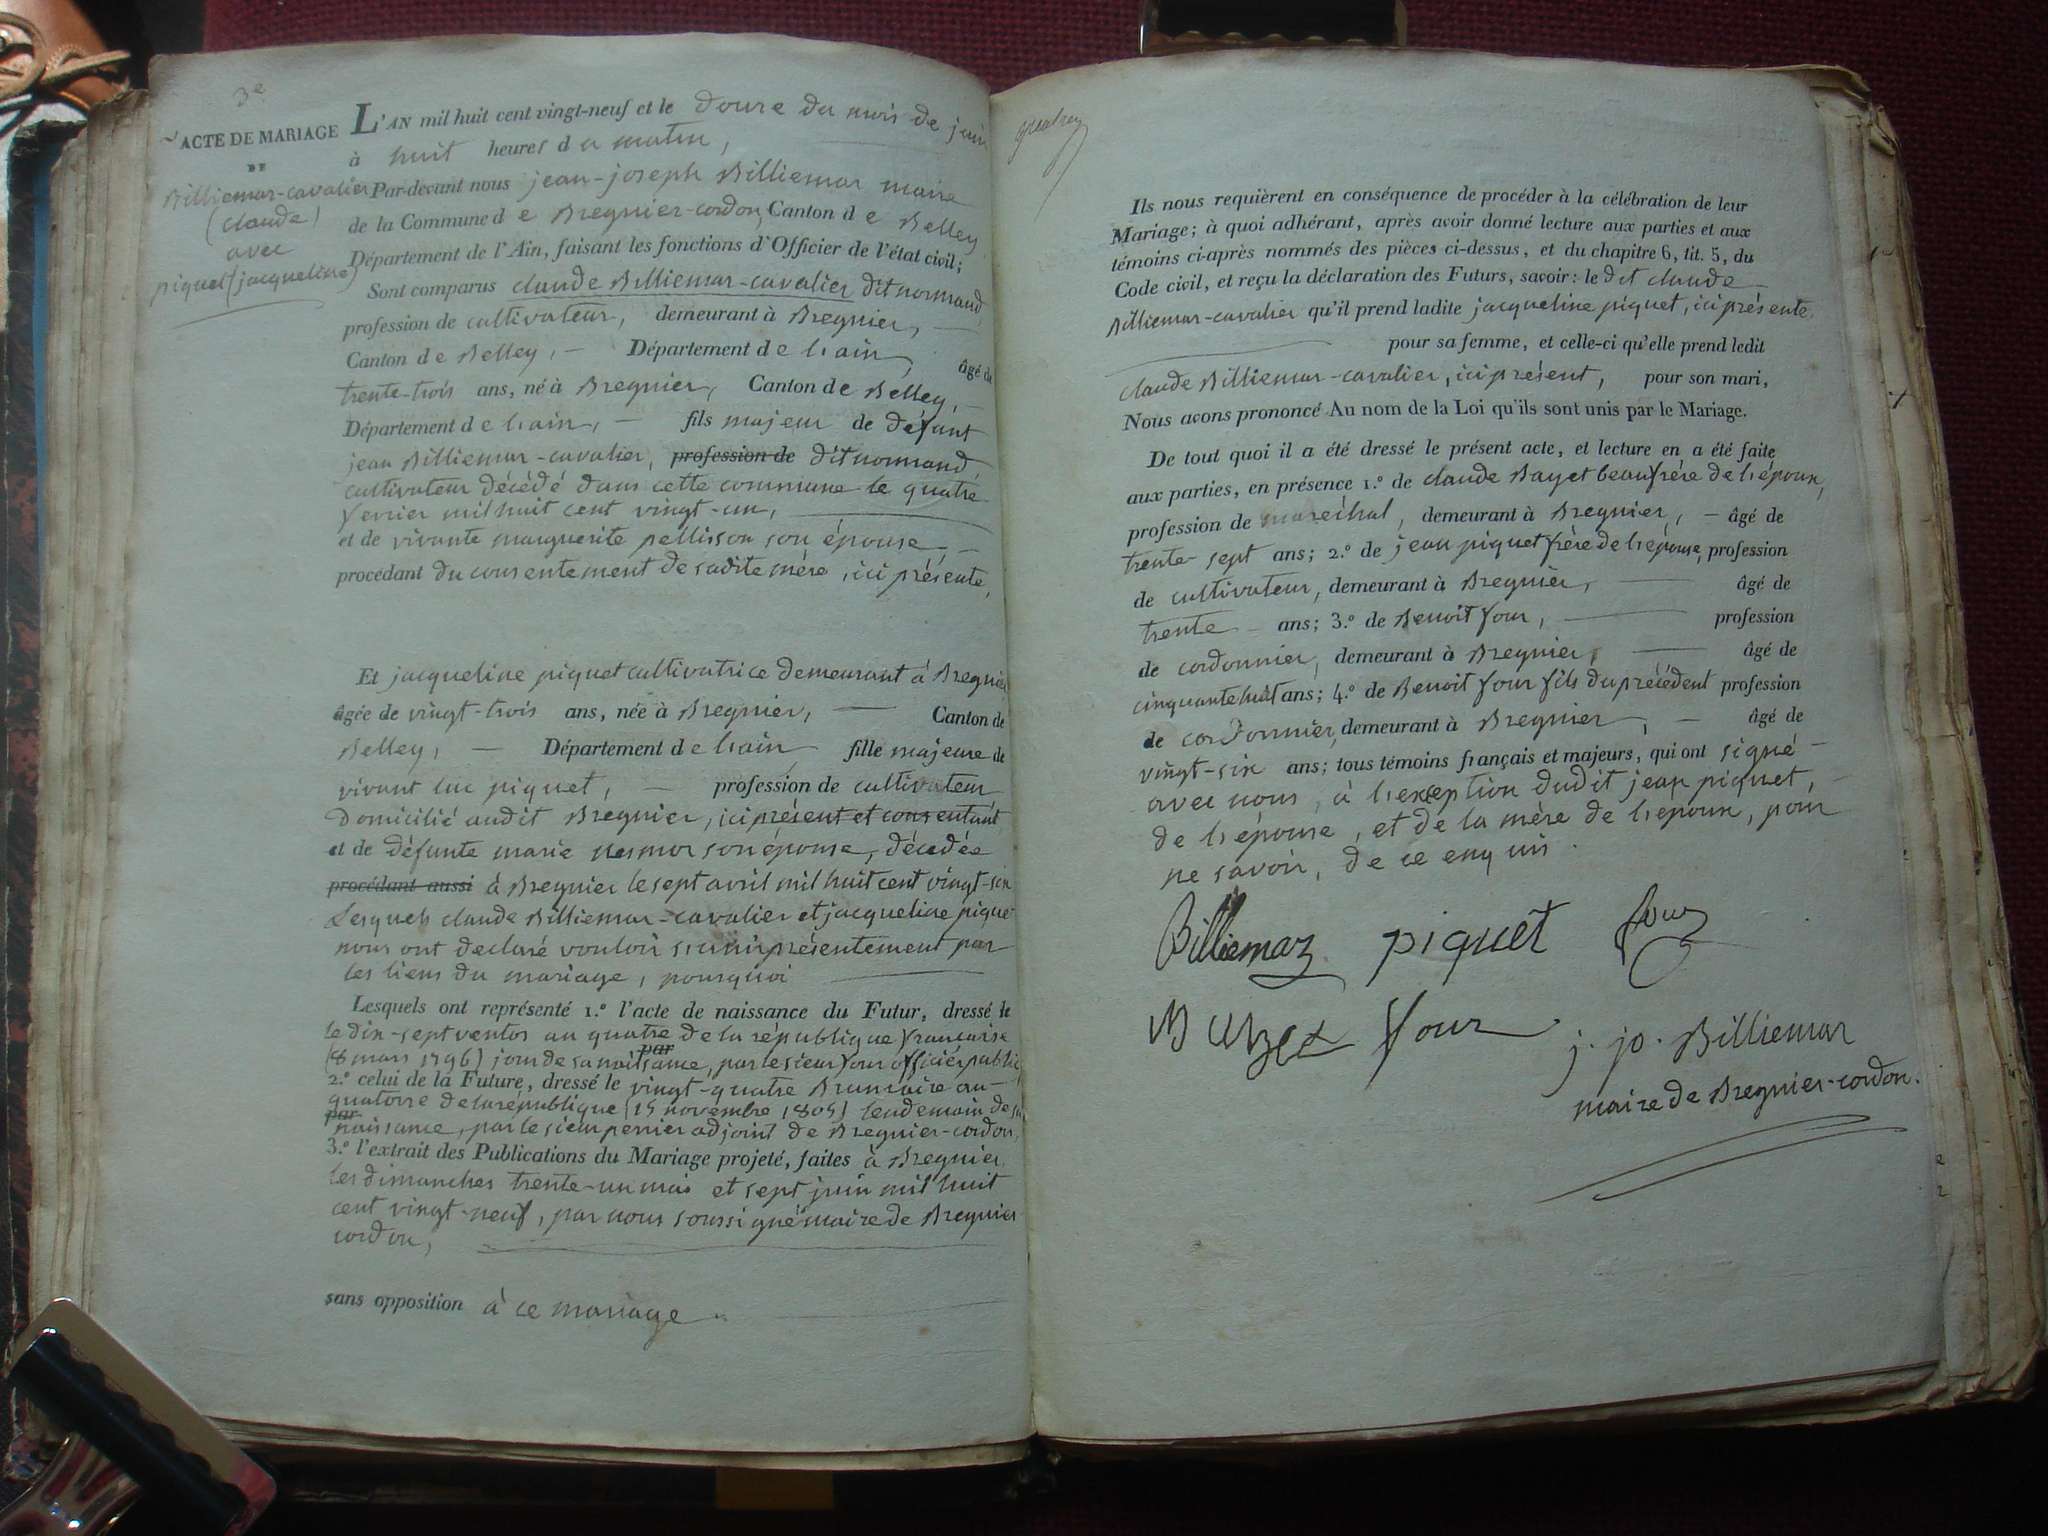 3e
ACTE DE MARIAGE
DE
Billiemar-cavalier
(claude)
avec
piquet (jacqueline)
L'AN mil huit cent vingt-neuf et le douze du mois de juin
à huit heures du matin,
Par-devant nous jean-joseph Billiemar maire
de la Commune de Bregnier-cordon, Canton de Belley
Département de l'Ain, faisant les fonctions d'Officier de l'état civil;
Sont comparus claude Billiemar-cavalier dit normand,
profession de cultivateur, demeurant à Bregnier,
Canton de Belley, Département de l'ain, âgé de
trente-trois ans, né à Bregnier, Canton de Belley,
Département de l'ain, fils majeur de défunt
jean Billiemar-cavalier, profession de dit normand
cultivateur décédé dans cette commune le quatre
fevrier mil huit cent vingt-un,
et de vivante marguerite pellisson son épouse,
procédant du consentement de sadite mère, ici présente,
Et jacqueline piquet cultivatrice demeurant à Bregnier
âgée de vingt-trois ans, née à Bregnier, Canton de
Belley, Département de l'ain fille majeure de
vivant luc piquet, profession de cultivateur
domicilié audit Bregnier, ici présent et consentant
et de défunte marie son épouse, décédée
procédant aussi à Bregnier le sept avril mil huit cent vingt-six
Lesquels claude Billiemar-cavalier et jacqueline piquet
nous ont declaré vouloir s'unir présentement par
les liens du mariage, pourquoi
Lesquels ont représenté 1.º l'acte de naissance du Futur, dressé le
le dix-sept ventos an quatre de la république francaise
(8 mars 1796) jour de sa naissance, par le sieur four officier public
par
2.º celui de la Future, dressé le vingt-quatre Brumaire an
quatorze de la république (15 novembre 1805) lendemain de sa
par naissance, par le sieur perrier adjoint de Bregnier-cordon,
3.º l'extrait des Publications du Mariage projeté, faites à Bregnier
les dimanches trente-un mai et sept juin mil huit
cent vingt-neuf, par nous soussigné maire de Bregnier
cordon,
sans opposition à ce mariage.
Ils nous requièrent en conséquence de procéder à la célébration de leur
Mariage; à quoi adhérant, après avoir donné lecture aux parties et aux
témoins ci-après nommés des pièces ci-dessus, et du chapitre 6, tit. 5, du
Code civil, et reçu la déclaration des Futurs, savoir: le dit claude
Billiemar-cavalier qu'il prend ladite jacqueline piquet, ici présente,
pour sa femme, et celle-ci qu'elle prend ledit
claude Billiemar-cavalier, ici présent, pour son mari,
Nous avons prononcé Au nom de la Loi qu'ils sont unis par le Mariage.
De tout quoi il a été dressé le présent acte, et lecture en a été faite
aux parties, en présence 1.º de claude Bayet beaufrère de l'époux,
profession de maréchal, demeurant à Bregnier, âgé de
trente-sept ans; 2.º de jean piquet frère de l'épouse, profession
de cultivateur, demeurant à Bregnier, âgé de
trente ans; 3.º de Benoit four, profession
de cordonnier, demeurant à Bregnier, âgé de
cinquante huit ans; 4.º de Benoit four fils du précédent profession
de cordonnier, demeurant à Bregnier, âgé de
vingt-six ans; tous témoins français et majeurs, qui ont signé
avec nous, à l'exception dudit jean piquet,
de l'épouse, et de la mère de l'époux, pour
ne savoir, de ce enquis.
Billiemaz piquet four
four
j. jo. Billiemar
maire de Bregnier-cordon.